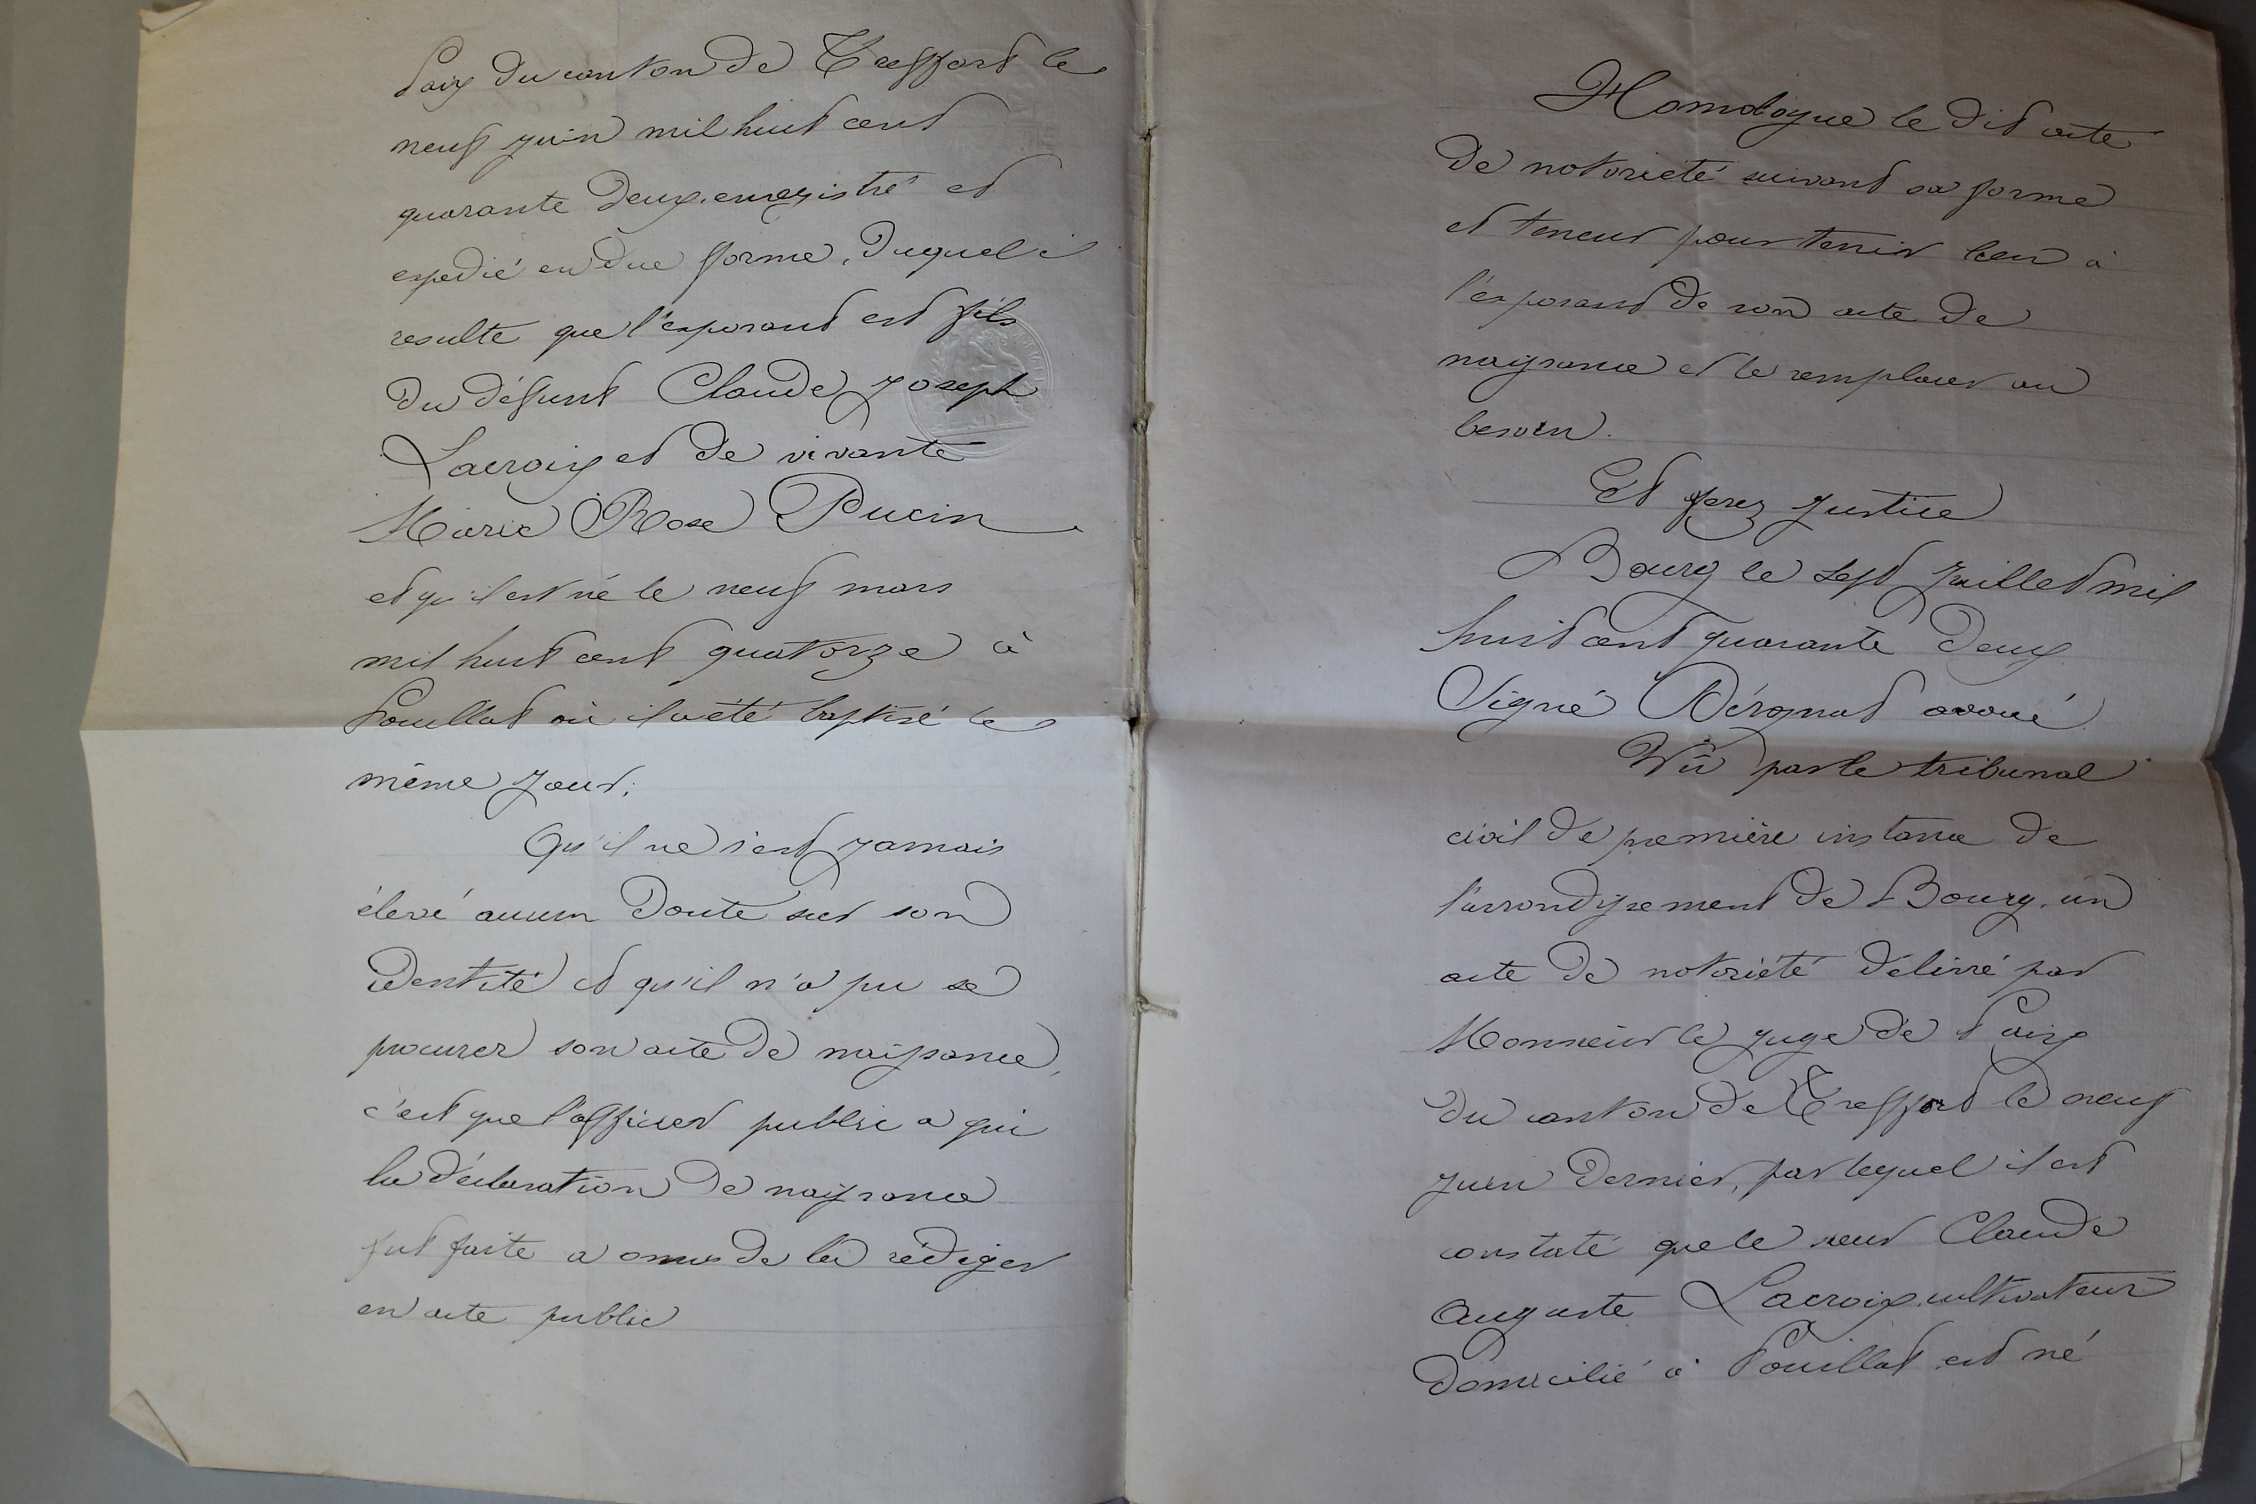 Paix du canton de Treffort le
neuf juin mil huit cent
quarante deux, enregistré et
expedié en due forme, duquel i
resulte que l'exposant est fils
du défunt Claude Joseph
Lacroix et de vivante
Marie Rose Pucin
et qu'il est né le neuf mars
mil huit cent quatorze à
Pouillat où il a été baptisé le
même jour;
Qu'il ne s'est jamais
élevé aucun doute sur son
identité et qu'il n'a pu se
procurer son acte de naissance,
c'est que l'officier public a qui
la déclaration de naissance
fut faite a omis de la rédiger
en acte public
Homologuer le dit acte
de notorieté suivant sa forme
et teneur pour tenir lieu à
l'exposant de son acte de
naissance et le remplacer au
besoin.
Et ferez justice
Bourg le sept juillet mil
huit cent quarante deux
Signé avoué
Vû par le tribunal
civil de première instance de
l'arrondissement de Bourg, un
acte de notoriété délivré par
Monsieur le juge de Paix
du canton de Treffort le neuf
juin dernier, par lequel il est
constaté que le sieur Claude
Auguste Lacroix, cultivateur
domicilié à Pouillat est né